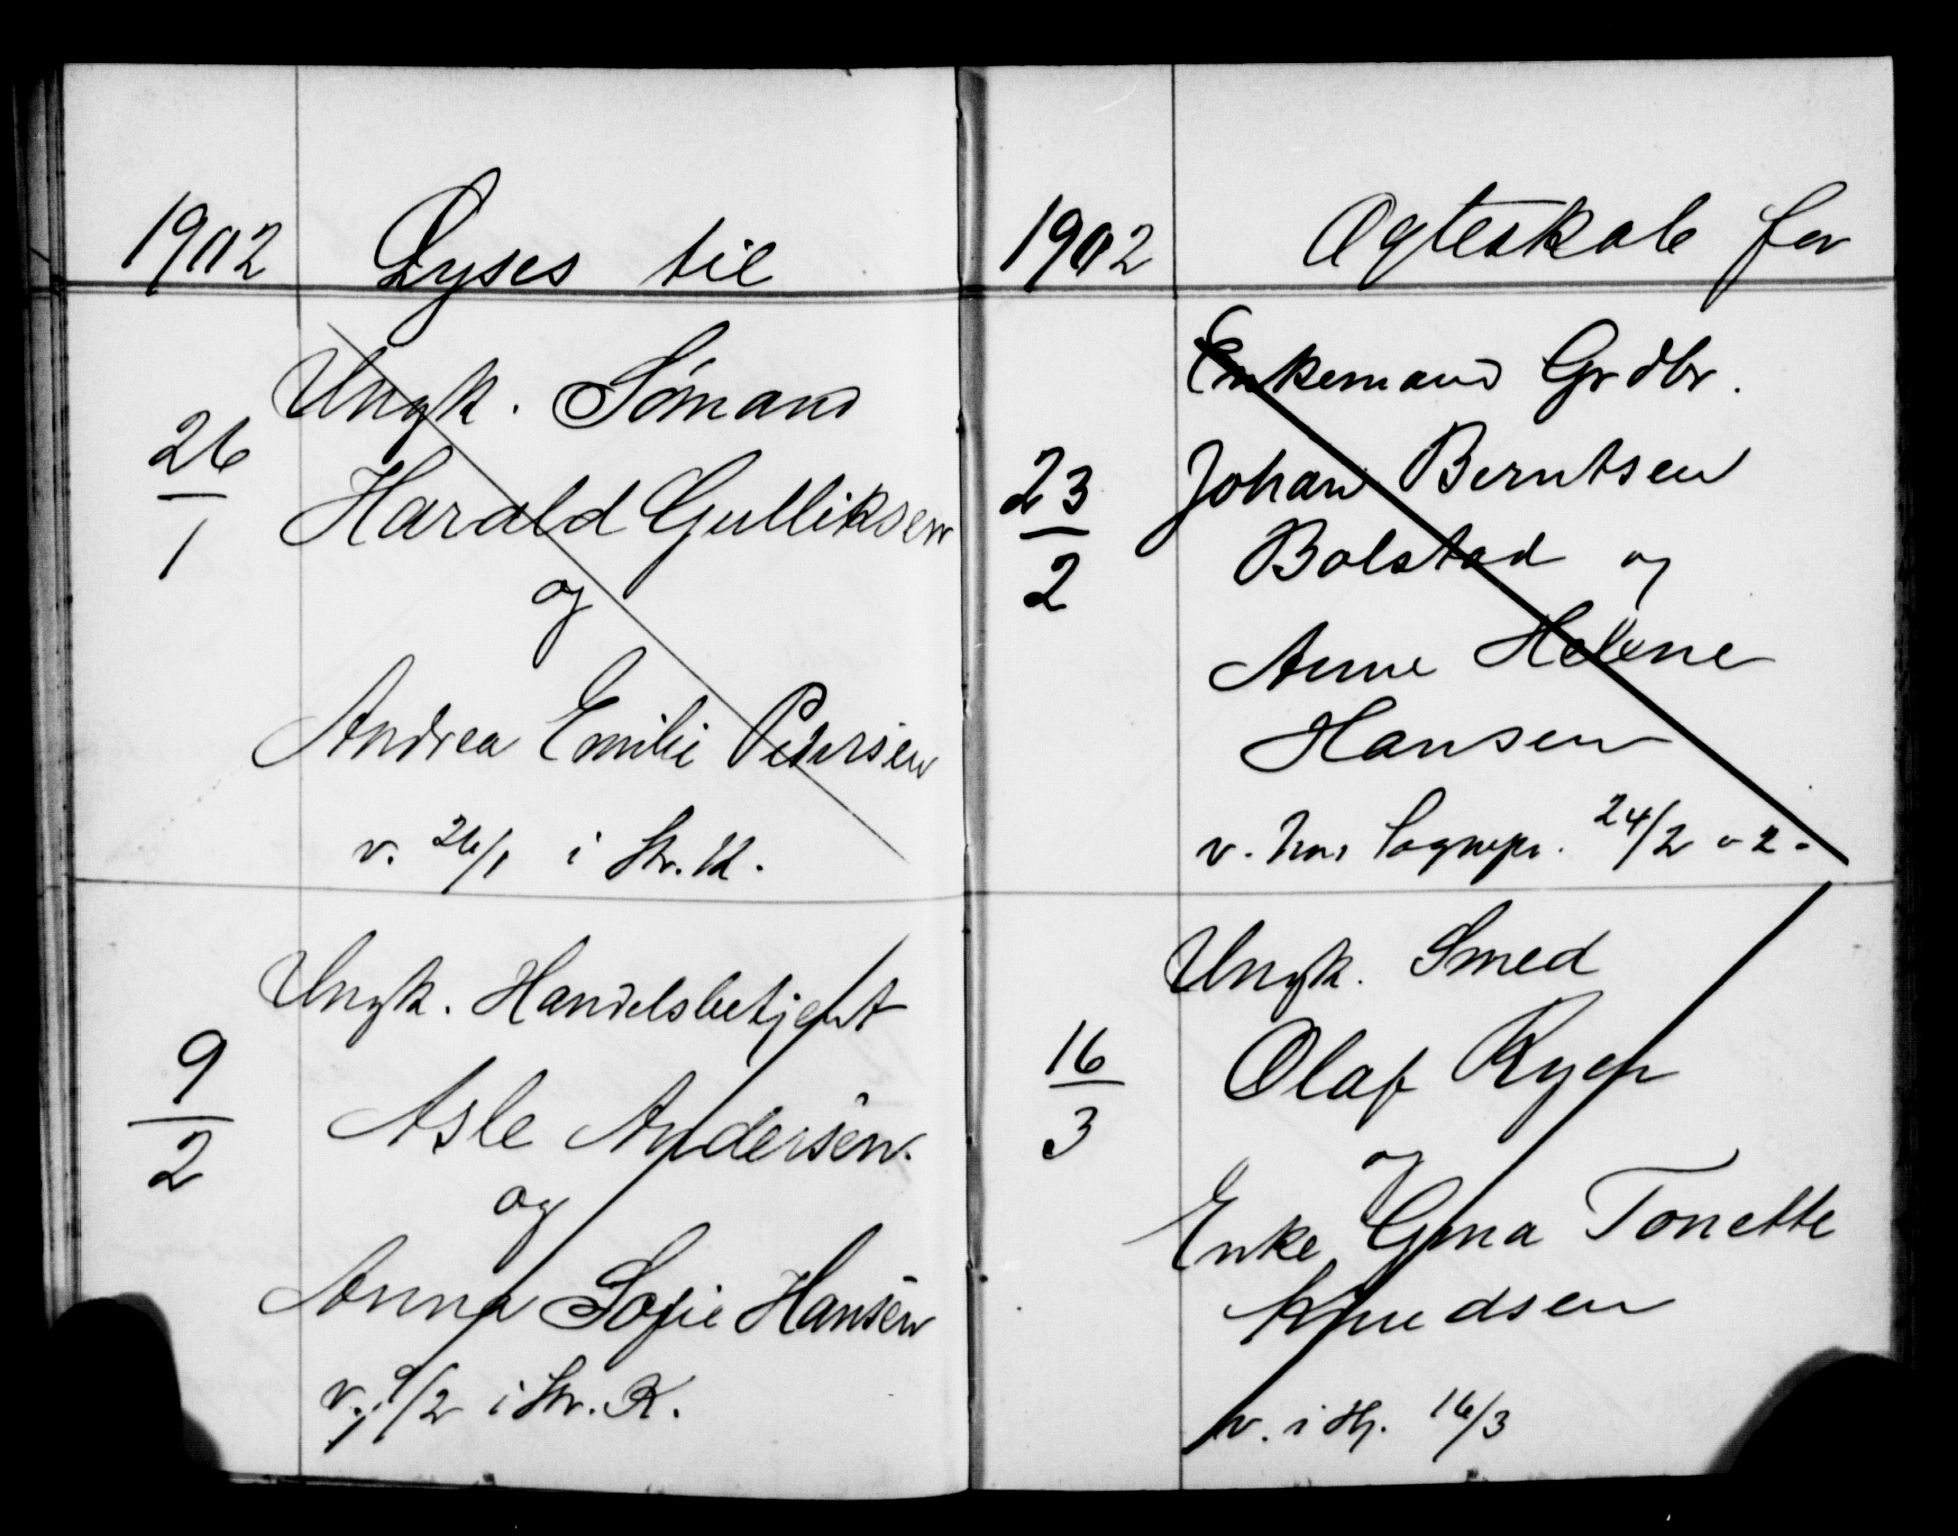 1902 Lyses til
26/1
Ungk. Sømand
Harald Gulliksen
og
Andrea Emilie Pedersen
v. 26/1 i Str. K.
9/2
Ungk. Handelsbetjent
Asle Andersen.
og
Anna Sofie Hansen
v. 9/2 i Str. K.
1902 Ægteskab for
23/2
Enkemand Grdbr.
Johan Berntsen
Bolstad og
Anne Helene
Hansen
v. hos Sognepr. 24/2 - 2 -
16/3
Ungk. Smed
Olaf Ryen
og
Enke Gina Tonette
Knudsen
v. i 16/3